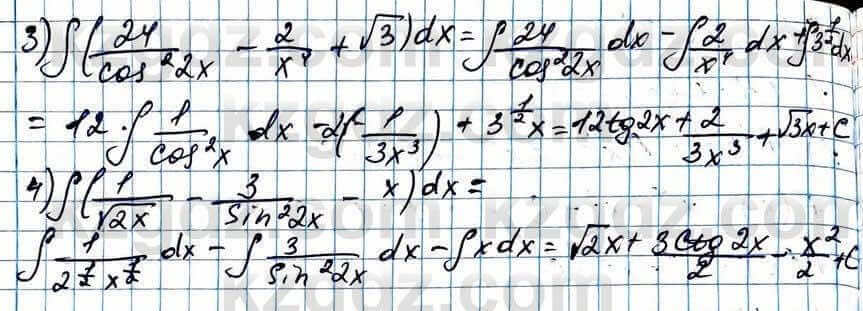 3) ∫(24/cos²2x - 2/x⁴ + √3)dx = ∫24/cos²2x dx - ∫2/x⁴ dx + ∫3^(1/2)dx
= 12·∫1/cos²x dx - 2(-1/3x³) + 3^(1/2)x = 12tg2x + 2/3x³ + √3x + C
4) ∫(1/√2x - 3/sin²2x - x)dx =
∫1/2^(1/2)x^(1/2) dx - ∫3/sin²2x dx - ∫xdx = √2x + 3ctg2x/2 - x²/2 + C